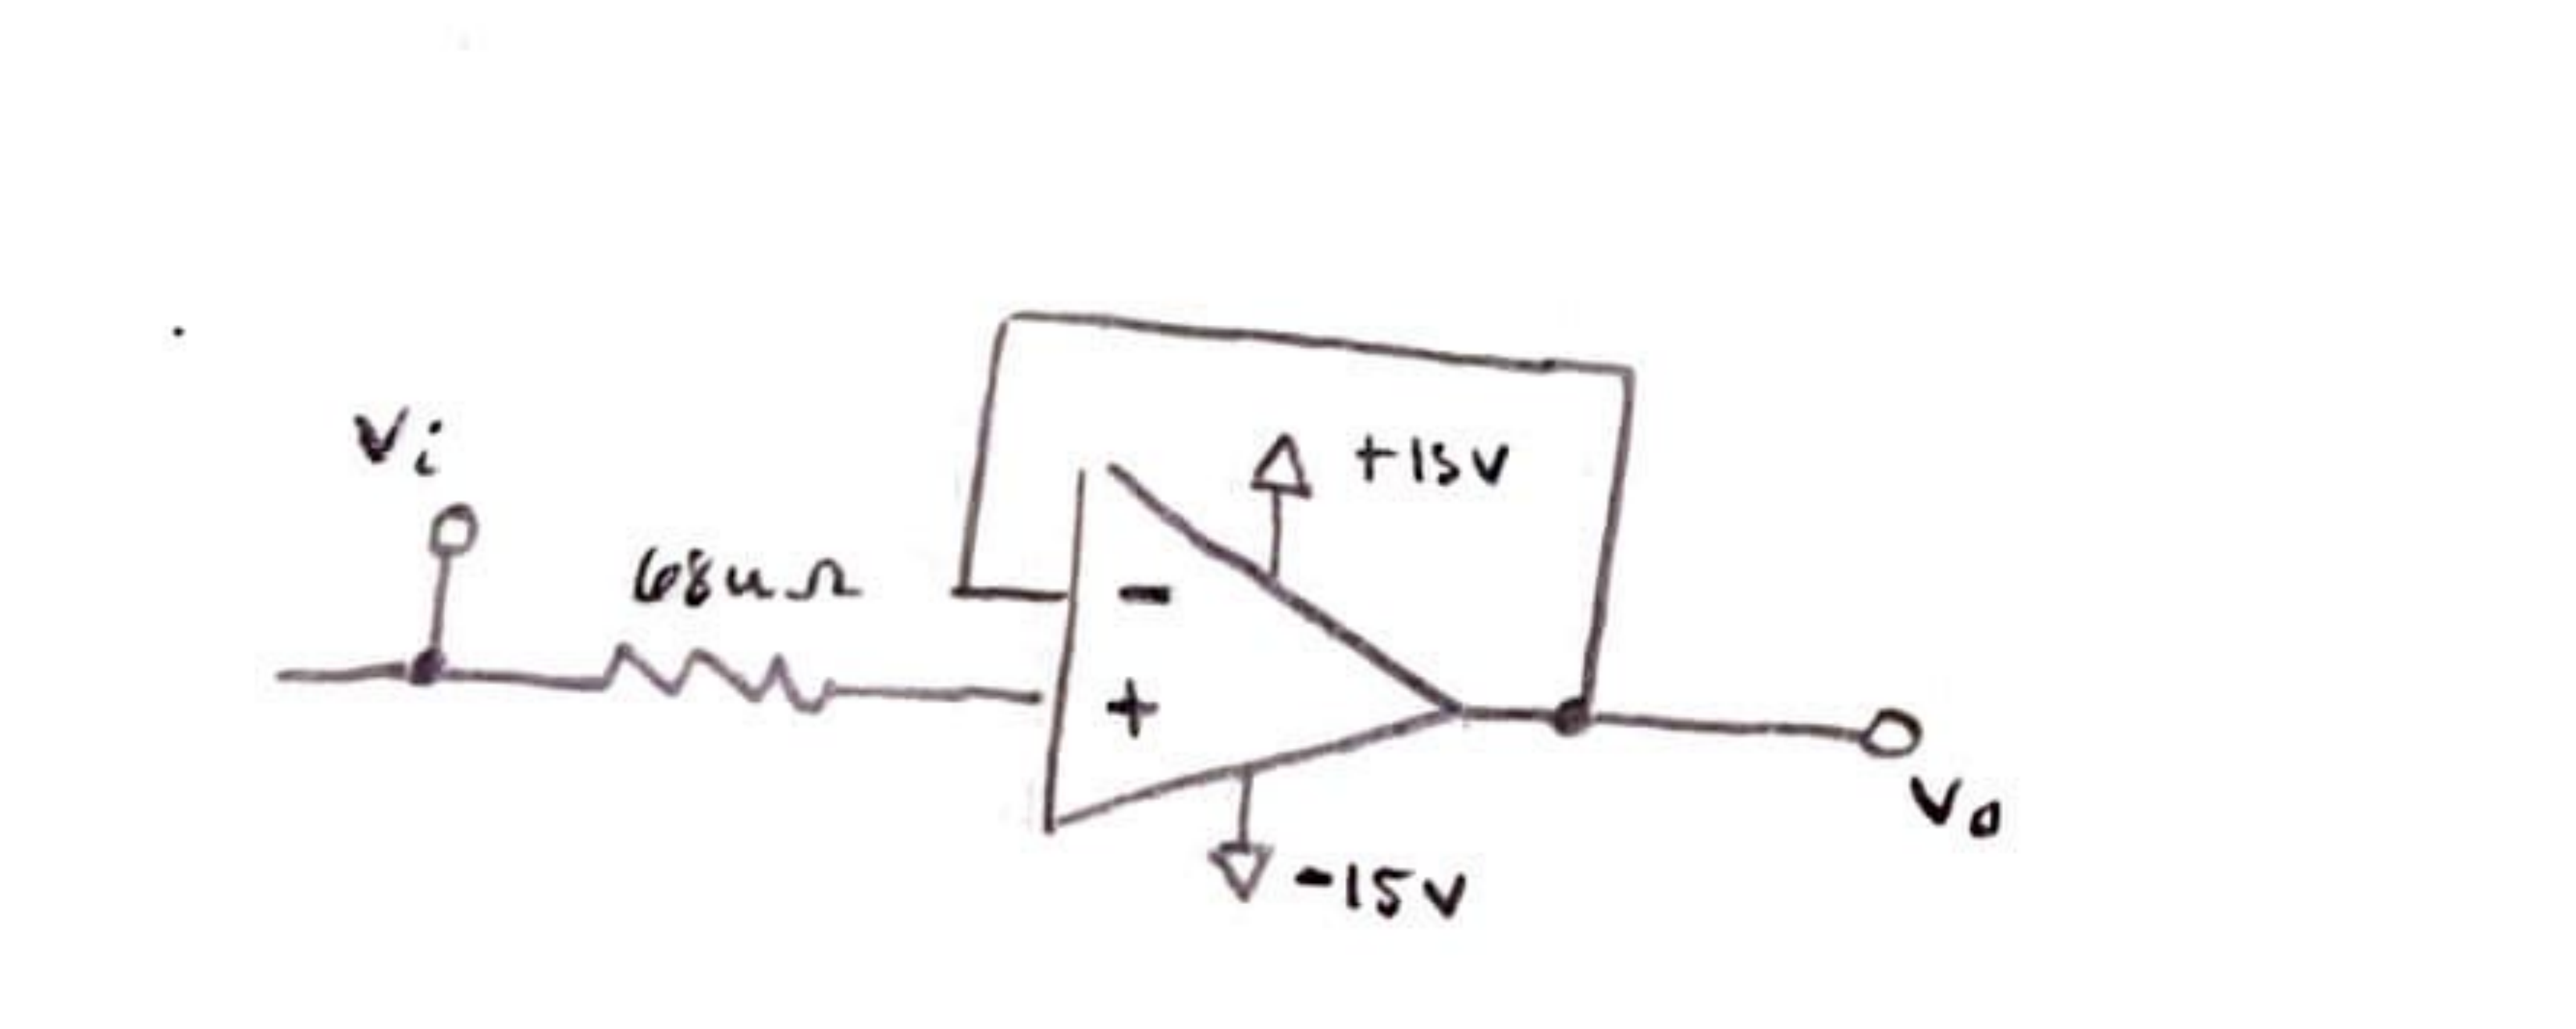 Vi
68uΩ
+15V
-
+
-15V
Vo